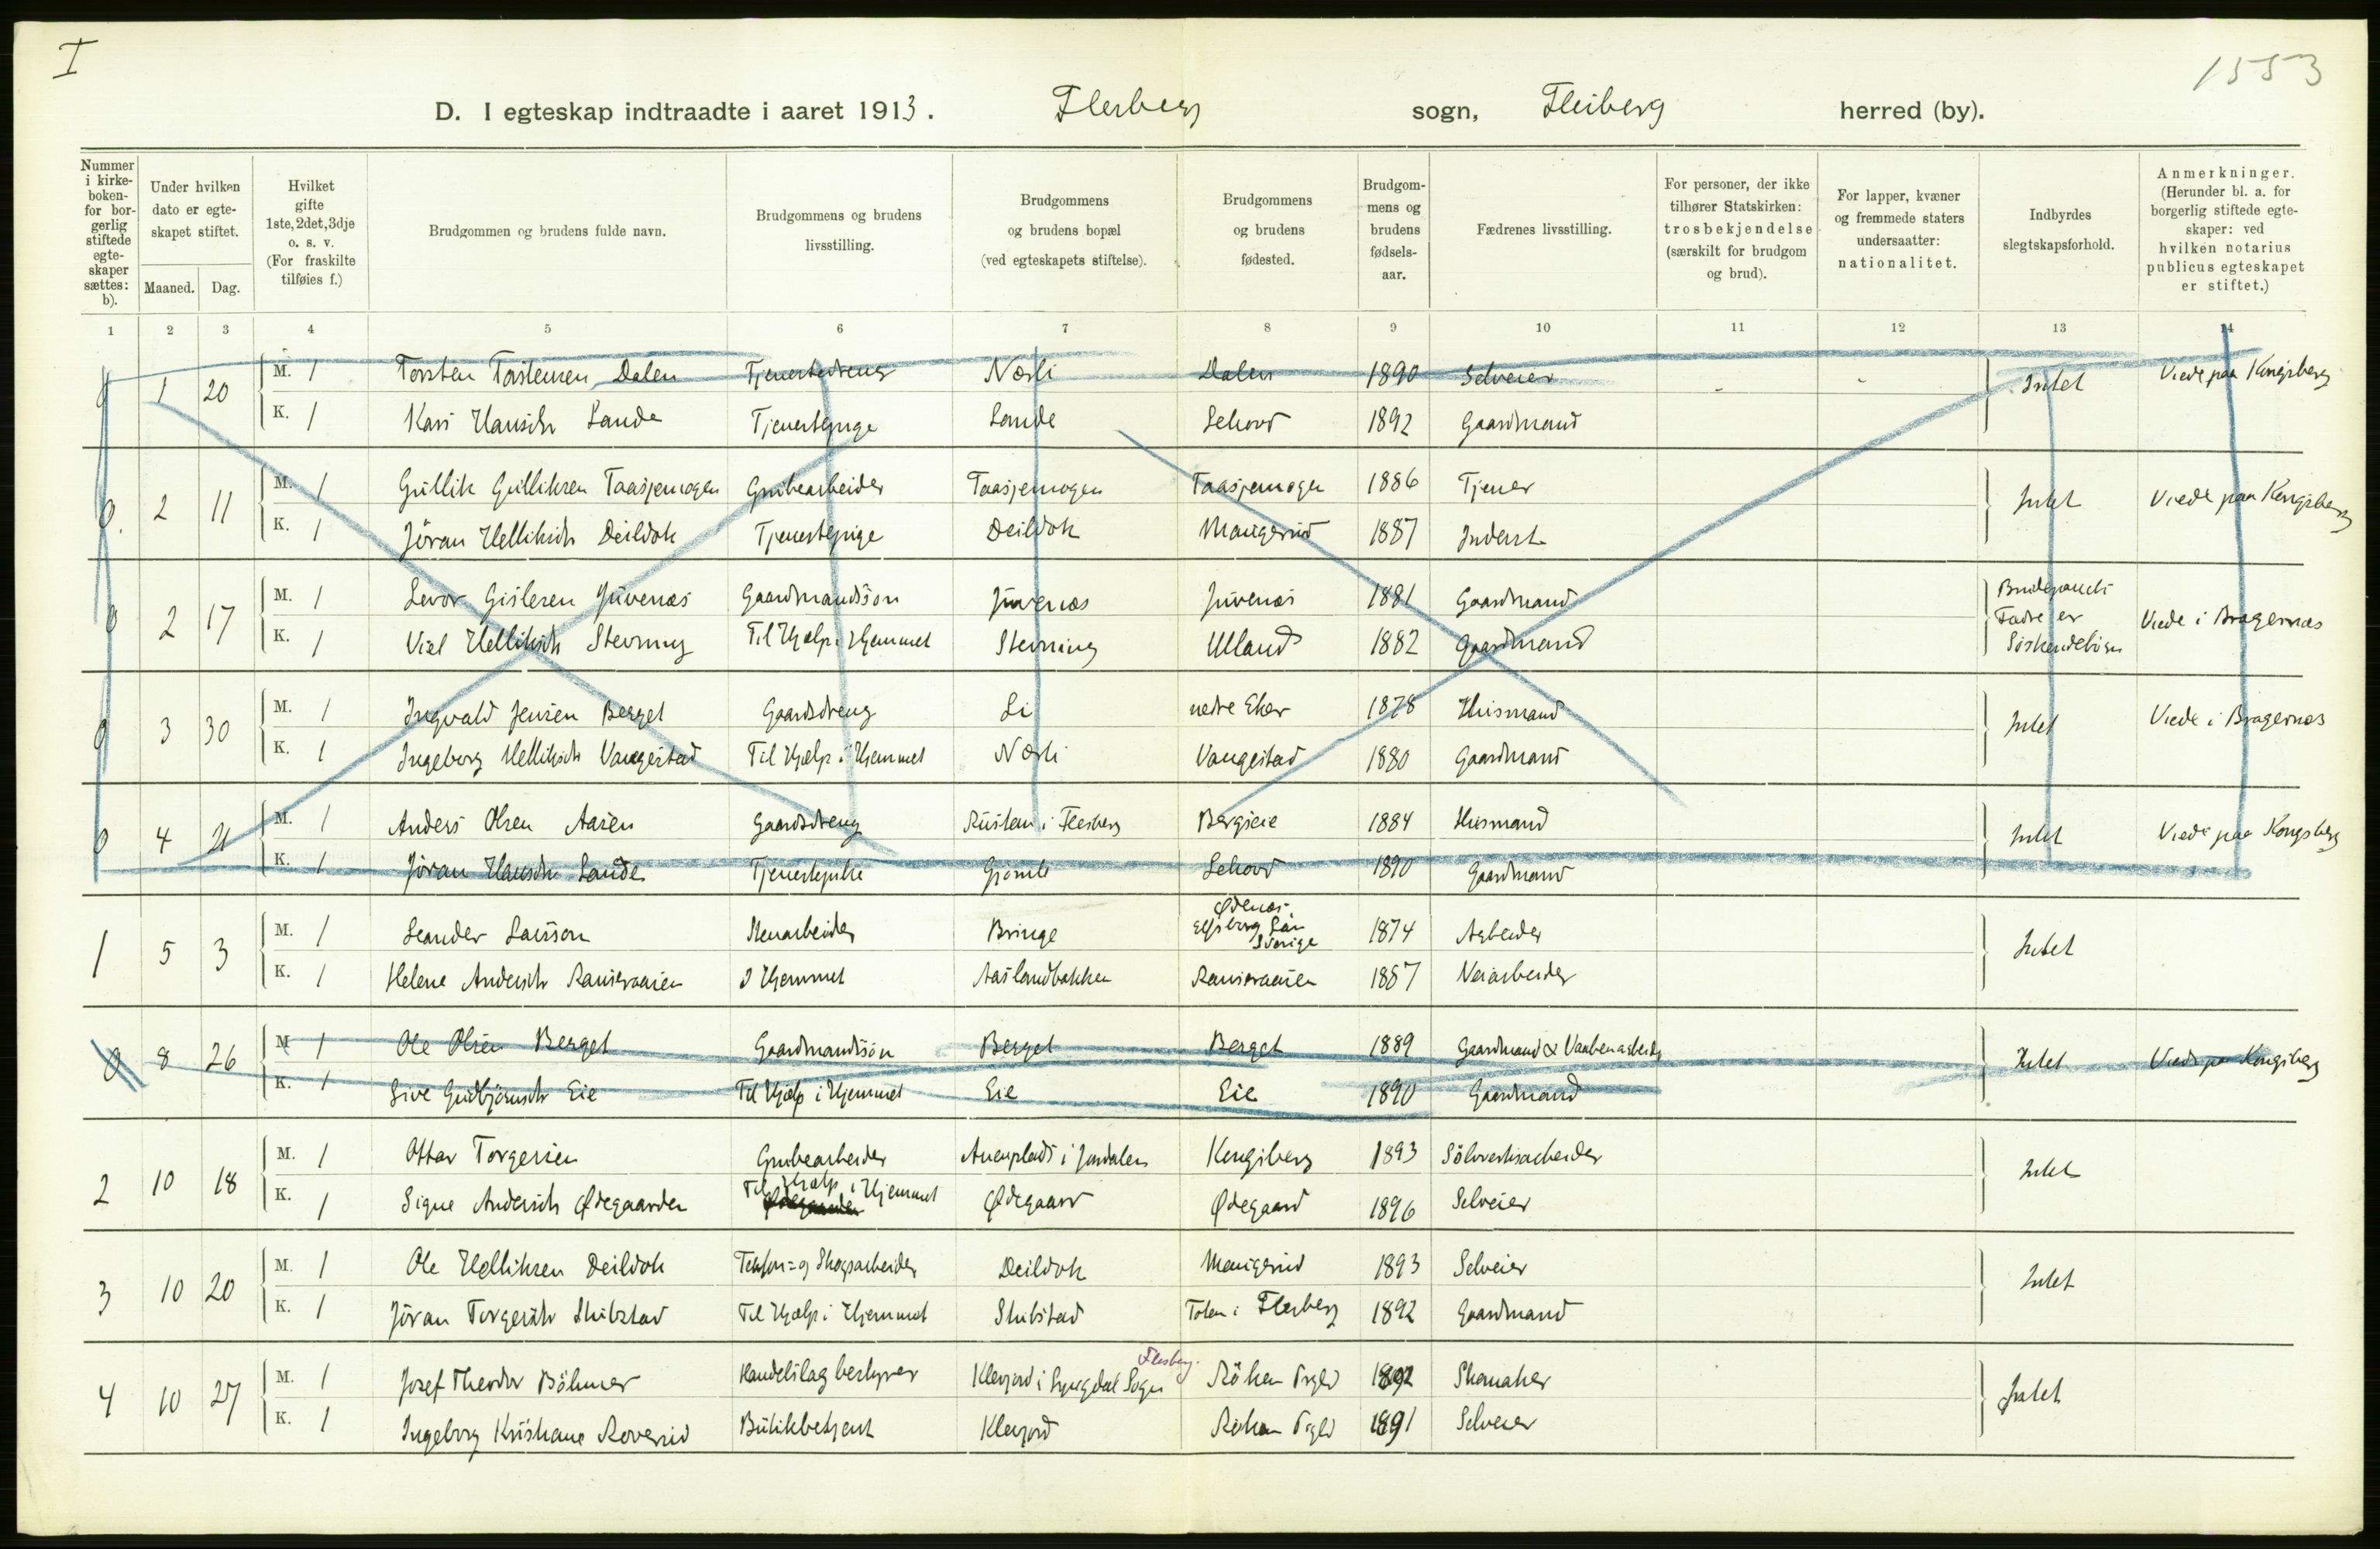 I
1553
D. I egteskap indtraadte i aaret 1913. Flesberg sogn, Flesberg herred (by).
Nummer i kirke-boken- for bor-gerlig stiftede egte-skaper sættes: b).
Under hvilken dato er egte-skapet stiftet.
Maaned. Dag.
Hvilket gifte 1ste, 2det, 3dje o. s. v. (For fraskilte tilføies f.)
Brudgommen og brudens fulde navn.
Brudgommens og brudens livsstilling.
Brudgommens og brudens bopæl (ved egteskapets stiftelse).
Brudgommens og brudens fødested.
Brudgom-mens og brudens fødsels-aar.
Fædrenes livsstilling.
For personer, der ikke tilhører Statskirken: trosbekjendelse (særskilt for brudgom og brud).
For lapper, kvæner og fremmede staters undersaatter: nationalitet.
Indbyrdes slegtskapsforhold.
Anmerkninger. (Herunder bl. a. for borgerlig stiftede egte-skaper: ved hvilken notarius publicus egteskapet er stiftet.)
1 2 3 4 5 6 7 8 9 10 11 12 13 14
0 1 20 M. 1 Torsten Torstensen Dalen Tjenestedreng Nærli Dalen 1890 Selveier - - Intet Viede paa Kongsberg
K. 1 Kari Hansdtr Lande Tjenestepige Lande Lehovd 1892 Gaardmand
0. 2 11 M. 1 Gullik Gulliksen Taasjemogen Grubearbeider Taasjemogen Taasjemogen 1886 Tjener Intet Viede paa Kongsberg
K. 1 Jöran Helliksdtr Deildok Tjenestepige Deildok Maugerud 1887 Inderst
0 2 17 M. 1 Levor Gislesen Juvenæs Gaardmandssön Juvenæs Juvenæs 1881 Gaardmand Brudeparrets Fædre er Söskendebörn Viede i Bragernæs
K. 1 Viel Helliksdtr Stevning Til Hjælp i Hjemmet Stevning Ulland 1882 Gaardmand
0 3 30 M. 1 Ingvald Jensen Berget Gaardsdreng Li nedre Eker 1878 Husmand Intet Viede i Bragernæs
K. 1 Ingeborg Helliksdtr Vangestad Til Hjælp i Hjemmet Nærli Vangestad 1880 Gaardmand
0 4 21 M. 1 Anders Olsen Aasen Gaardsdreng Rustan i Flesberg Bergseie 1884 Husmand Intet Viede paa Kongsberg
K. 1 Jöran Hansdtr Lande Tjenestepike Lehovd 1890 Gaardmand
1 5 3 M. 1 Leander Larsson Stenarbeider Bringe Ødenæs Elfsborg Län Sverige 1874 Arbeider Intet
K. 1 Helene Andersdtr Ramsraaien I Hjemmet Aaslandbakken Ramsraaien 1887 Veiarbeider
0 8 26 M 1 Ole Olsen Berget Gaardmandssön Berget Berget 1889 Gaardmand & Vaabenarbeider Intet Viede paa Kongsberg
K. 1 Sive Gudbjörnsdtr Eie Til Hjælp i Hjemmet Eie Eie 1890 Gaardmand
2 10 18 M. 1 Ottar Torgersen Grubearbeider i Jondalen Kongsberg 1893 Sölvverksarbeider Intet
K. 1 Signe Andersdtr Ødegaarden Til Hjælp i Hjemmet Ødegaard Ødegaard 1896 Selveier
3 10 20 M. 1 Ole Helliksen Deildok Telefon= og Skogsarbeider Deildok Maugerud 1893 Selveier Intet
K. 1 Jöran Torgersdtr Skibstad Til Hjælp i Hjemmet Skibstad i Flesberg 1892 Gaardmand
4 10 27 M. 1 Josef Theodor Böhmer Handelslagbestyrer Klevjord i Lyngdal Sogn Flesberg. Röken Prgld 1892 Skomaker Intet
K. 1 Ingeborg Kristiane Roverud Butikbetjent Klevjord Röken Prgld 1891 Selveier